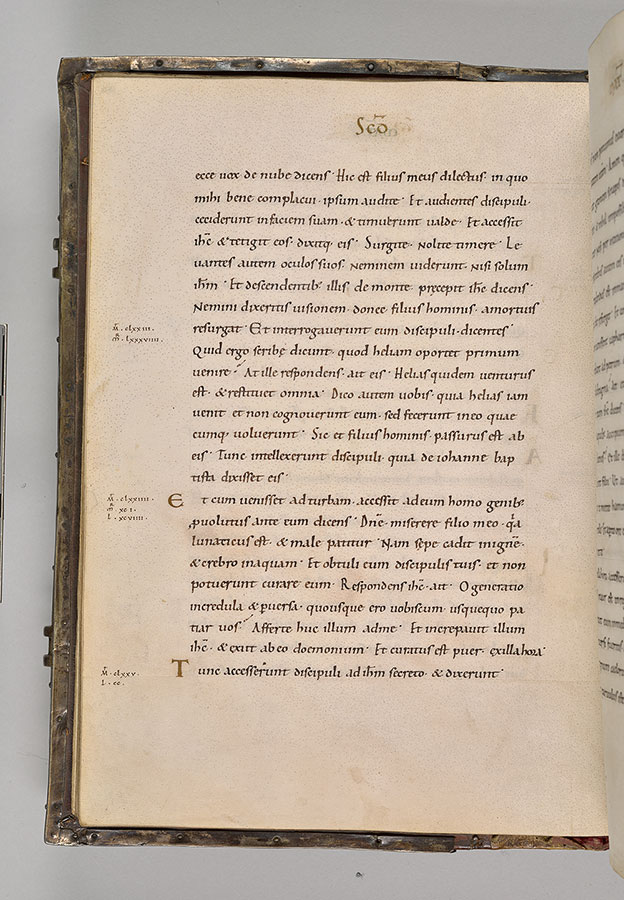 Scd̄
ecce uox de nube dicens · Hic est filius meus dilectus · in quo
mihi bene complacui · ipsum audite · Et audientes discipuli ·
ceciderunt in faciem suam · & timuerunt ualde · Et accessit
ihc̄ · & tetigit eos · dixitq; eis · Surgite · Nolite timere · Le
uantes autem oculos suos · Neminem uiderunt · Nisi solum
ihm̄ · Et descendentib; illis de monte · precepit ihc̄ dicens ·
Nemini dixeritis uisionem · donec filius hominis · amortuis
ṁ · clxxiii ·
m̊ · lxxxviiii ·
resurgat · Et interrogauerunt eum discipuli · dicentes ·
Quid ergo scribe dicunt · quod heliam oportet primum
uenire · At ille respondens · ait eis · Helias quidem uenturus
est · & restituet omnia · Dico autem uobis · quia helias iam
uenit et non cognouerunt eum · sed fecerunt in eo quae
cumq; uoluerunt · Sic et filius hominis · passurus est ab
eis · Tunc intellexerunt discipuli · quia de iohanne bap
tista dixisset eis ·
ṁ · clxxiiii ·
m̊ · xci ·
l · xcviiii ·
Et cum uenisset ad turbam · accessit ad eum homo genib;
ꝓuolutus ante eum dicens · Dn̄e · miserere filio meo · qa
lunaticus est · & male patitur · Nam sepe cadit in ignē ·
& crebro in aquam · Et obtuli eum discipulis tuis · et non
potuerunt curare eum · Respondens ihc̄ · ait · O generatio
incredula & ꝑuersa · quousque ero uobiscum · usquequo pa
tiar uos · Afferte huc illum ad me · Et increpauit illum
ihc̄ · & exiit ab eo doemonium · Et curatus est puer · ex illa hora ·
ṁ · clxxv ·
l · cc ·
Tunc accesserunt discipuli ad ihm̄ secreto · & dixerunt ·